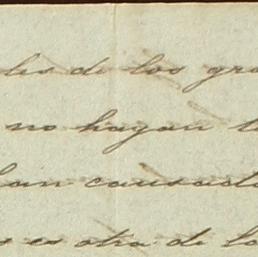 les de los gra
no hayan t
han causado
s es otra de lo